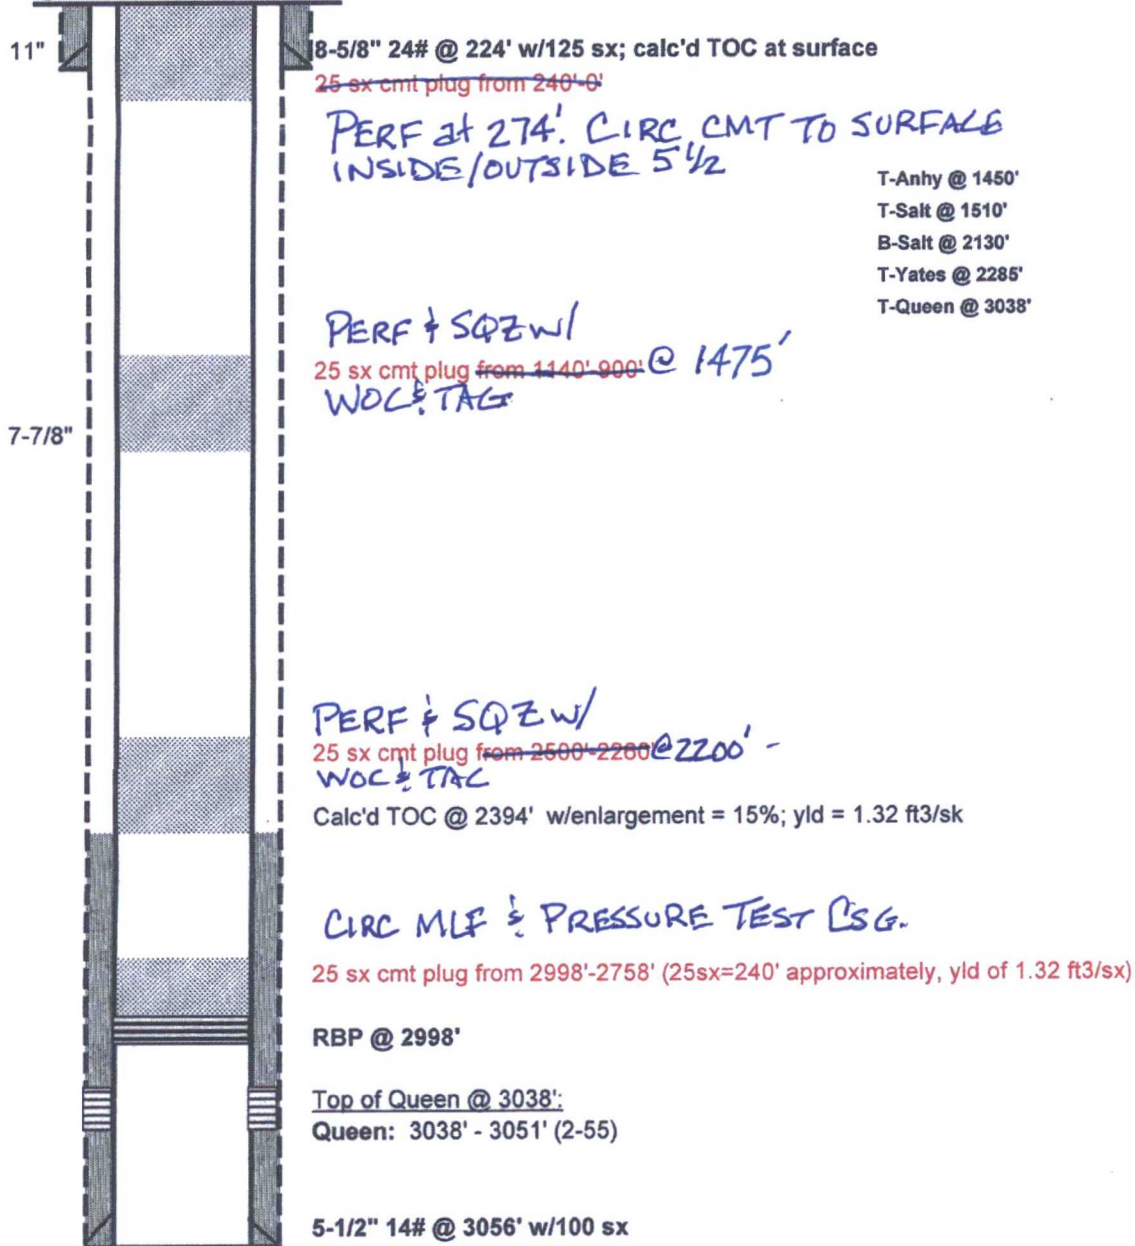 11"
8-5/8" 24# @ 224' w/125 sx; calc'd TOC at surface
25 sx cmt plug from 240'-0'
PERF at 274'. CIRC CMT TO SURFACE
INSIDE/OUTSIDE 5 1/2
T-Anhy @ 1450'
T-Salt @ 1510'
B-Salt @ 2130'
T-Yates @ 2285'
T-Queen @ 3038'
PERF & SQZ w/
25 sx cmt plug from 1140'-900' @ 1475'
WOC & TAG
7-7/8"
PERF & SQZ w/
25 sx cmt plug from 2500'-2260' @ 2200' -
WOC & TAG
Calc'd TOC @ 2394' w/enlargement = 15%; yld = 1.32 ft3/sk
CIRC MLF & PRESSURE TEST CSG.
25 sx cmt plug from 2998'-2758' (25sx=240' approximately, yld of 1.32 ft3/sx)
RBP @ 2998'
Top of Queen @ 3038':
Queen: 3038' - 3051' (2-55)
5-1/2" 14# @ 3056' w/100 sx